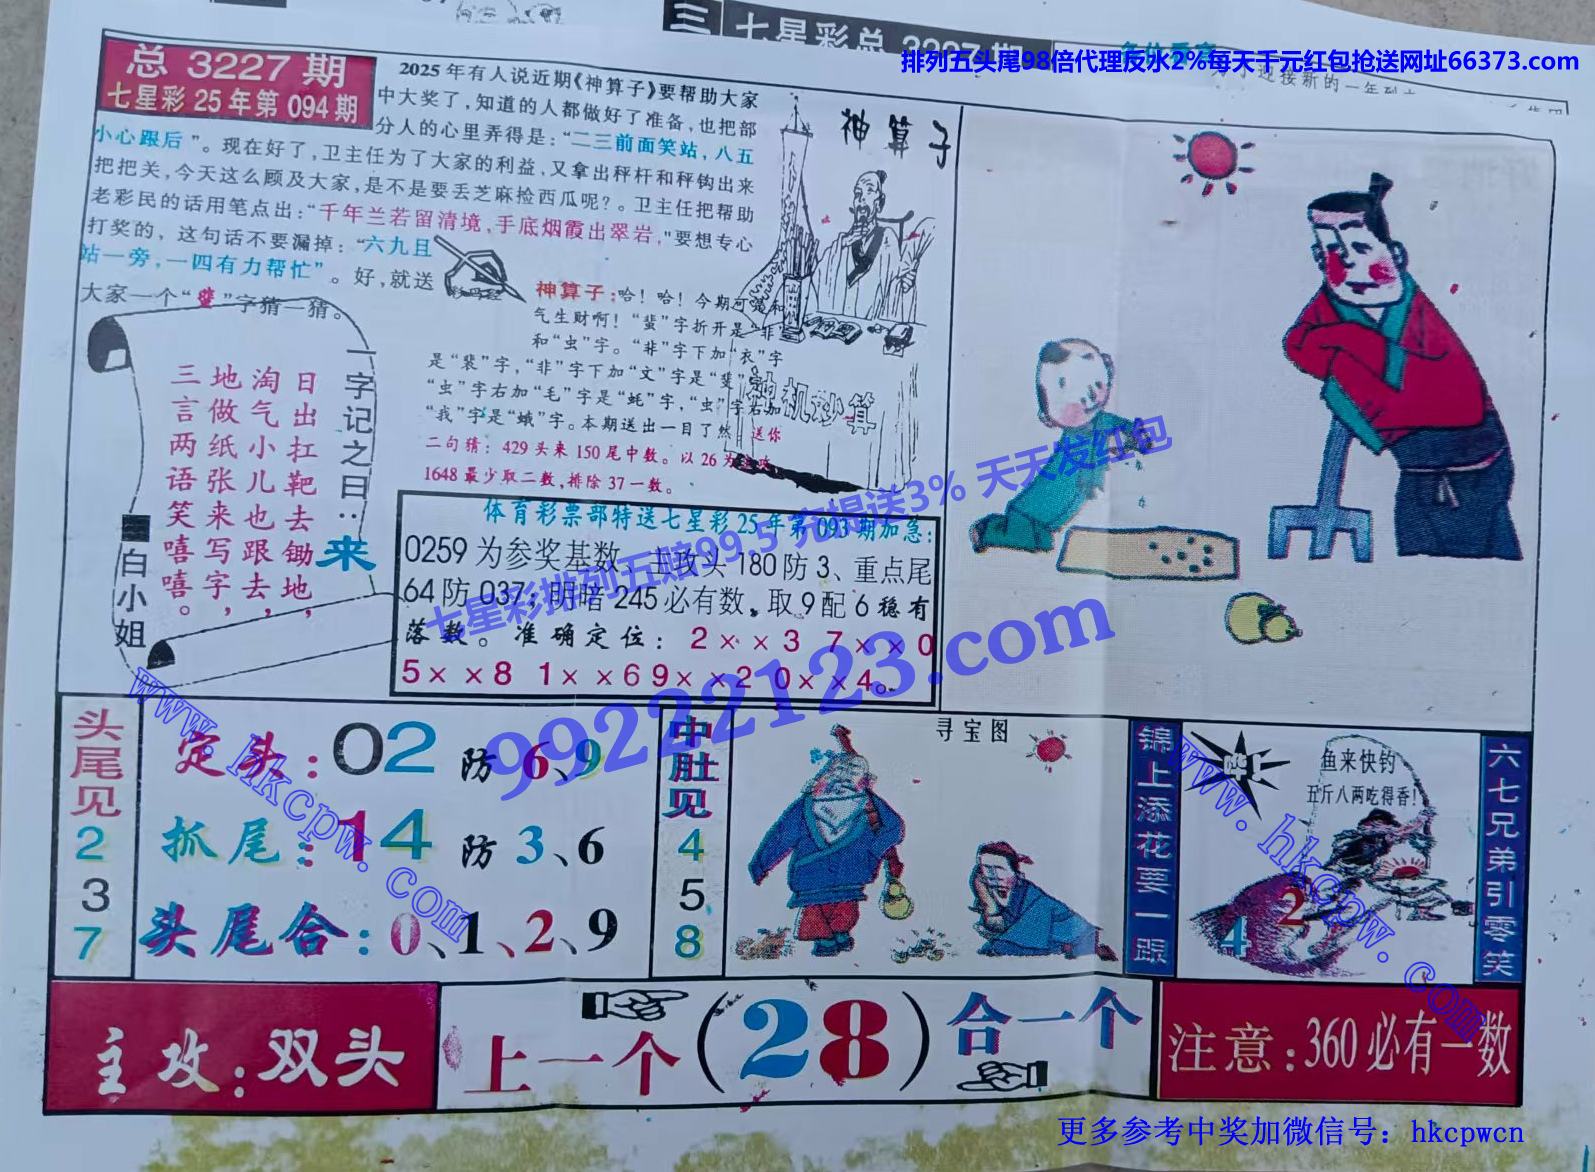 三 七星彩总 3227期
排列五头尾98倍代理反水2%每天千元红包抢送网址66373.com
迎接新的一年到
总 3227 期
七星彩 25 年第 094 期
2025年有人说近期《神算子》要帮助大家
中大奖了，知道的人都做好了准备，也把部
分人的心里弄得是：“二三前面笑站，八五
小心跟后”。现在好了，卫主任为了大家的利益，又拿出秤杆和秤钩出来
把把关，今天这么顾及大家，是不是要丢芝麻捡西瓜呢？。卫主任把帮助
老彩民的话用笔点出：“千年兰若留清境，手底烟霞出翠岩，”要想专心
打奖的，这句话不要漏掉：“六九且
站一旁，一四有力帮忙”。好，就送
大家一个“蜚”字猜一猜。
神算子
神算子：哈！哈！今期可是和
气生财啊！“蜚”字折开是“非”
和“虫”字。“非”字下加“衣”字
是“裴”字，“非”字下加“文”字是“斐”
“虫”字右加“毛”字是“蚝”字，“虫”字右加
“我”字是“蛾”字。本期送出一目了然，送你
二句猜：429头来150尾中数。以26为主攻
1648最少取二数，排除37一数。
神机妙算
一字记之曰：来
日出扛靶去锄地，
淘气小儿也跟去，
地做纸张来写字，
三言两语笑嘻嘻。
白小姐
体育彩票部特送七星彩25年第093期加急：
0259为参奖基数、主攻头180防3、重点尾
64防037；明暗245必有数，取9配6稳有
落数。准确定位：2××3 7××0
5××8 1××6 9××2 0××4。
七星彩排列五赔99.5 充提送3% 天天发红包
99222123.com
www.hkcpw.com
www.hkcpw.com
头尾见
2
3
7
定头：02 防 6、9
抓尾：14 防 3、6
头尾合：0、1、2、9
中肚见
4
5
8
寻宝图
锦上添花要一跟
鱼来快钓
五斤八两吃得香！
4 2
六七兄弟引零笑
主攻：双头
上一个（28）合一个
注意：360必有一数
更多参考中奖加微信号：hkcpwcn